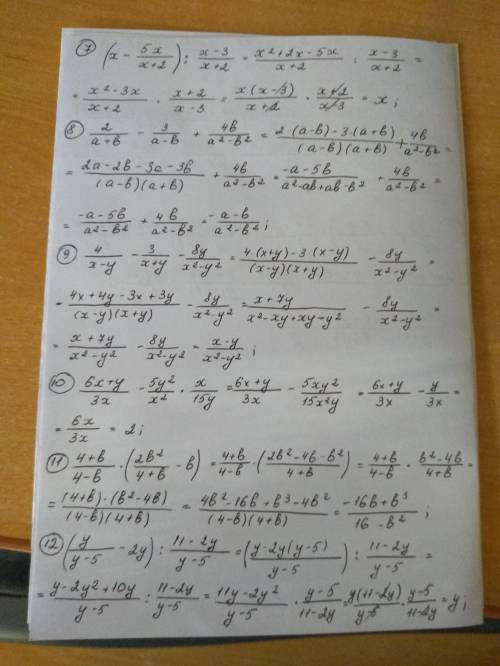 ⑦ (x - 5x/(x+2)) : (x-3)/(x+2) = (x²+2x-5x)/(x+2) : (x-3)/(x+2) =
= (x²-3x)/(x+2) · (x+2)/(x-3) = x(x-3)/(x+2) · (x+2)/(x-3) = x;
⑧ 2/(a+b) - 3/(a-b) + 4b/(a²-b²) = (2(a-b)-3·(a+b))/((a-b)(a+b)) + 4b/(a²-b²) =
= (2a-2b-3a-3b)/((a-b)(a+b)) + 4b/(a²-b²) = (-a-5b)/(a²-ab+ab-b²) + 4b/(a²-b²) =
= (-a-5b)/(a²-b²) + 4b/(a²-b²) = (-a-b)/(a²-b²);
⑨ 4/(x-y) - 3/(x+y) - 8y/(x²-y²) = (4·(x+y)-3·(x-y))/((x-y)(x+y)) - 8y/(x²-y²) =
= (4x+4y-3x+3y)/((x-y)(x+y)) - 8y/(x²-y²) = (x+7y)/(x²-xy+xy-y²) - 8y/(x²-y²) =
= (x+7y)/(x²-y²) - 8y/(x²-y²) = (x-y)/(x²-y²);
⑩ (6x+y)/3x - 5y²/x² · x/15y = (6x+y)/3x - 5xy²/15x²y = (6x+y)/3x - y/3x =
= 6x/3x = 2;
⑪ (4+b)/(4-b) · (2b²/(4+b) - b) = (4+b)/(4-b) · ((2b²-4b-b²)/(4+b)) = (4+b)/(4-b) · (b²-4b)/(4+b) =
= ((4+b)·(b²-4b))/((4-b)(4+b)) = (4b²-16b+b³-4b²)/((4-b)(4+b)) = (-16b+b³)/(16-b²);
⑫ (y/(y-5) - 2y) : (11-2y)/(y-5) = ((y-2y(y-5))/(y-5)) : (11-2y)/(y-5) =
= (y-2y²+10y)/(y-5) : (11-2y)/(y-5) = (11y-2y²)/(y-5) · (y-5)/(11-2y) = y(11-2y)/(y-5) · (y-5)/(11-2y) = y;